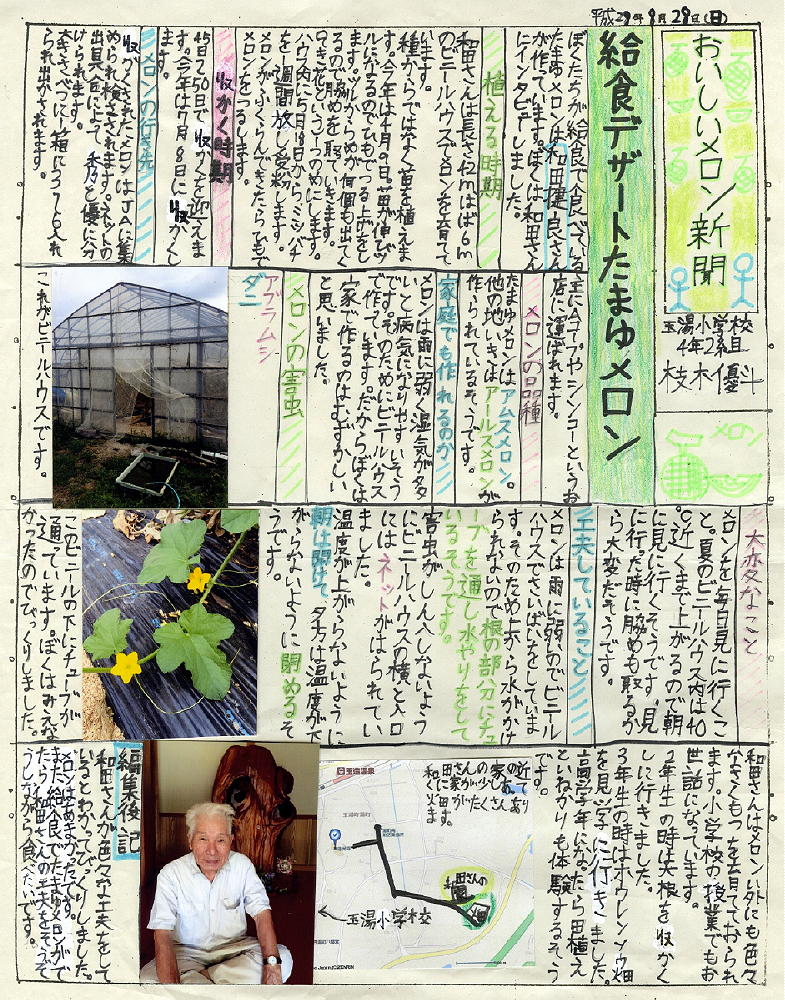 平成29年8月29日(日)
おいしいメロン新聞
玉湯小学校
4年2組
枝木優斗
メロン
給食デザートたまゆメロン
ぼくたちが給食で食べている
たまゆメロンは和田健良さん
が作ています。ぼくは和田さん
にインタビューしました。
植える時期
和田さんは長さ42mはば6m
のビニールハウスでメロンを育て
います。
種からではなく苗を植えま
す。今年は4月9日苗が伸びツ
ルになるのでひもでつる上げをし
ます。ツルからめが何個も出てく
るので脇めを取っていきます。
ハウス内に5月18日からミツバチ
を1週間放し受粉します。
メロンがふくらんできたらひもで
メロンをつるします。
収かく時期
45日〜50日で収かくを迎えま
す。今年は7月8日に収かくし
ます。
メロンの行き先
収かくされたメロンはJAに集
められ検さされます。ネットの
出具合によって秀乃と優に分
けられます。
大きさべつに1箱に5〜6入れ
られ出かされます。
主にAコープやシンコーというお
店に運ばれます。
メロンの品種
たまゆメロンはアムスメロン。
他の地いきはアールスメロンが
作られているそうです。
家庭でも作れるのか
メロンは雨に弱く湿気が多
いと病気になりやすいそう
です。そのためにビニールハウス
で作ています。だからぼくは
家で作るのはむずかしい
と思いました。
メロンの害虫
アブラムシ
ダニ
これがビニールハウスです。
大変なこと
メロンを毎日見に行くこ
と。夏のビニールハウス内は40
℃近くまで上がるので朝
に見に行くそうです。見
に行った時に脇めも取るか
ら大変だそうです。
工夫していること
メロンは雨に弱いのでビニール
ハウスでさいばいをしていま
す。そのため上から水がかけ
られないので根の部分にチュ
ーブを通し水やりをして
いるそうです。
害虫がしん入しないよう
にビニールハウスの横と入口
には ネットがはられてい
ました。
温度が上がらないように
朝は開けて夕方は温度が下
がらないように閉めるそ
うです。
このビニールの下にチューブが
通っています。ぼくはみえな
かったのでびっくりしました。
和田さんはメロン以外にも色々
ます。小学校の授業でもお
世話になっています。
2年生の時は大根を収かく
しに行きました。
3年生の時はホウレンソウ畑
を見学に行きました。
高学年になったら田植え
といねかりも体験するそう
です。
玉造温泉
玉湯小学校
和田さんの
畑
編集後記
和田さんが色々な工夫をして
いるとわかってびっくりしました。
メロンはあまかったです。
また給食でたまゆメロンがで
たら和田さんの工夫をそうぞ
うしながら食べたいです。